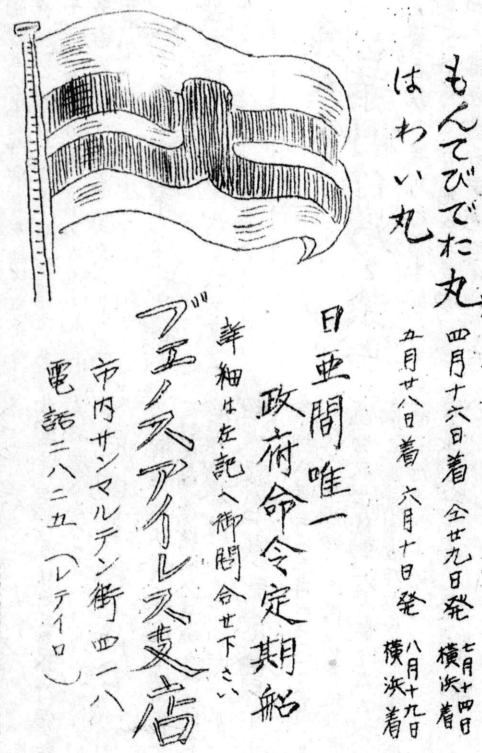 もんてびでお丸 四月十六日着 仝廿九日発 七月十四日横浜着
はわい丸 五月廿八日着 六月十日発 八月十九日横浜着
日亜間唯一
政府命令定期船
詳細は左記へ御問合せ下さい
ブエノスアイレス支店
市内サンマルテン街四一八
電話二八二五(レテイロ)